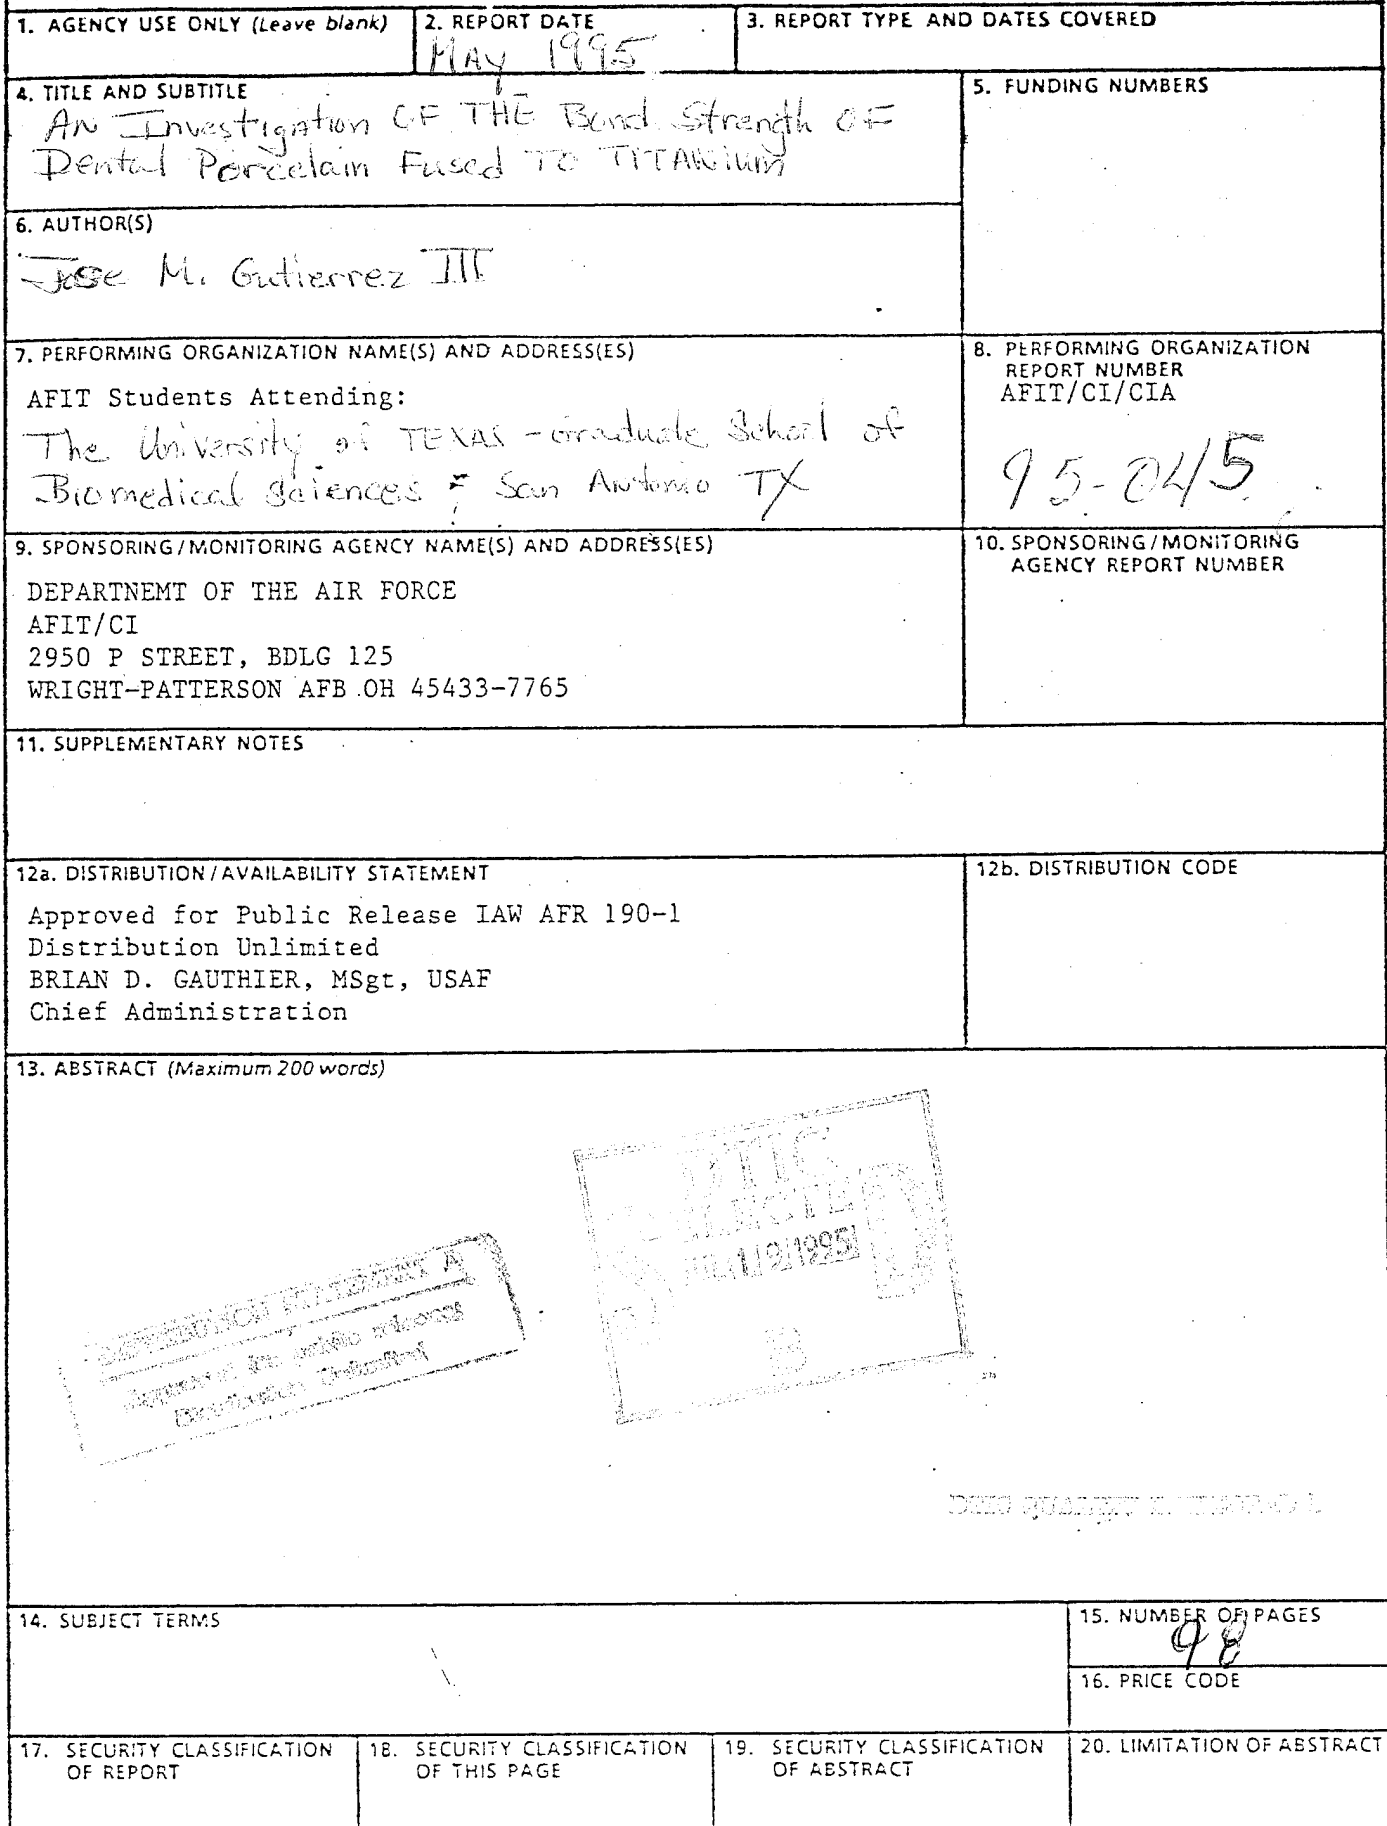 1. AGENCY USE ONLY (Leave blank)
2. REPORT DATE
MAY 1995
3. REPORT TYPE AND DATES COVERED
4. TITLE AND SUBTITLE
AN Investigation OF THE Bond Strength OF
Dental Porcelain Fused TO TITANium
5. FUNDING NUMBERS
6. AUTHOR(S)
Jose M. Gutierrez III
7. PERFORMING ORGANIZATION NAME(S) AND ADDRESS(ES)
AFIT Students Attending:
The University of TEXAS - Graduate School of
Biomedical Sciences San Antonio TX
8. PERFORMING ORGANIZATION
REPORT NUMBER
AFIT/CI/CIA
95-045
9. SPONSORING/MONITORING AGENCY NAME(S) AND ADDRESS(ES)
DEPARTNEMT OF THE AIR FORCE
AFIT/CI
2950 P STREET, BDLG 125
WRIGHT-PATTERSON AFB OH 45433-7765
10. SPONSORING/MONITORING
AGENCY REPORT NUMBER
11. SUPPLEMENTARY NOTES
12a. DISTRIBUTION/AVAILABILITY STATEMENT
Approved for Public Release IAW AFR 190-1
Distribution Unlimited
BRIAN D. GAUTHIER, MSgt, USAF
Chief Administration
12b. DISTRIBUTION CODE
13. ABSTRACT (Maximum 200 words)
DTIC
ELECTE
JUL 19 1995
B
DISTRIBUTION STATEMENT A
Approved for public release
Distribution Unlimited
14. SUBJECT TERMS
15. NUMBER OF PAGES
98
16. PRICE CODE
17. SECURITY CLASSIFICATION
OF REPORT
18. SECURITY CLASSIFICATION
OF THIS PAGE
19. SECURITY CLASSIFICATION
OF ABSTRACT
20. LIMITATION OF ABSTRACT